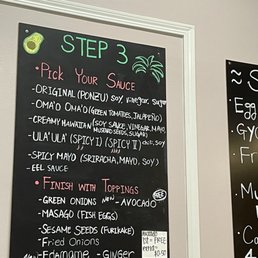 STEP 3
• Pick Your Sauce
- ORIGINAL (PONZU) soy, vinegar, sugar
- OMA'O OMA'O (GREEN TOMATOES, JALAPEÑO)
- CREAMY HAWAIIAN (SOY SAUCE, VINEGAR, MAYO,
MUSTARD SEEDS, SUGAR)
- ULA'ULA' (SPICY I) (SPICY II)
- SPICY MAYO (SRIRACHA, MAYO, SOY)
- EEL SAUCE
• FINISH WITH TOPPINGS
- GREEN ONIONS NEW - AVOCADO
- MASAGO (FISH EGGS)
- SESAME SEEDS (FURIKAKE)
- Fried Onions
- Edamame - GINGER
FREE
S
Egg
Fr